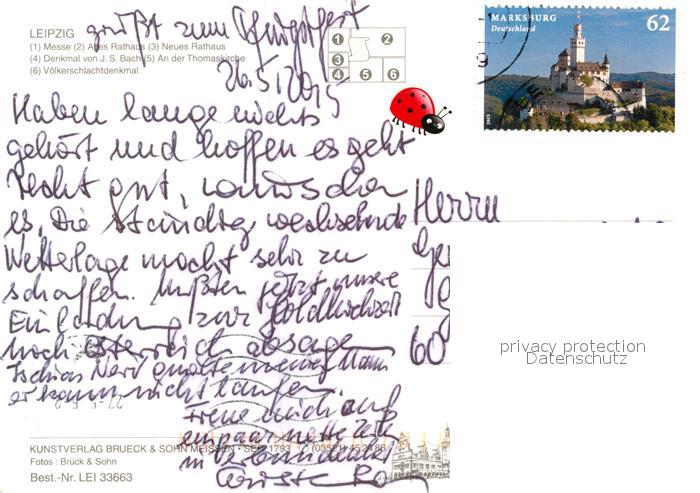 grüßt zum Pfingstfest
LEIPZIG
(1) Messe (2) Altes Rathaus (3) Neues Rathaus
(4) Denkmal von J. S. Bach (5) An der Thomaskirche
(6) Völkerschlachtdenkmal
1 2
3
4 5 6
26.5.2015
MARKSBURG
Deutschland
62
Haben lange nichts
gehört und hoffen es geht
recht gut, wünschen
es. Die ständig wechselnde
Wetterlage macht sehr zu
schaffen. Mußten jetzt unsere
Einladung zur Goldhochzeit
nach Österreich absagen
Ischias Nerv quälte meinen Mann
er kann nicht laufen.
Freue mich auf
ein paar nette Zeilen
in Verbundenheit
Herrn
60
privacy protection
Datenschutz
KUNSTVERLAG BRUECK & SOHN MEISSEN · SEIT 1793
Fotos : Brück & Sohn
Best.-Nr. LEI 33663